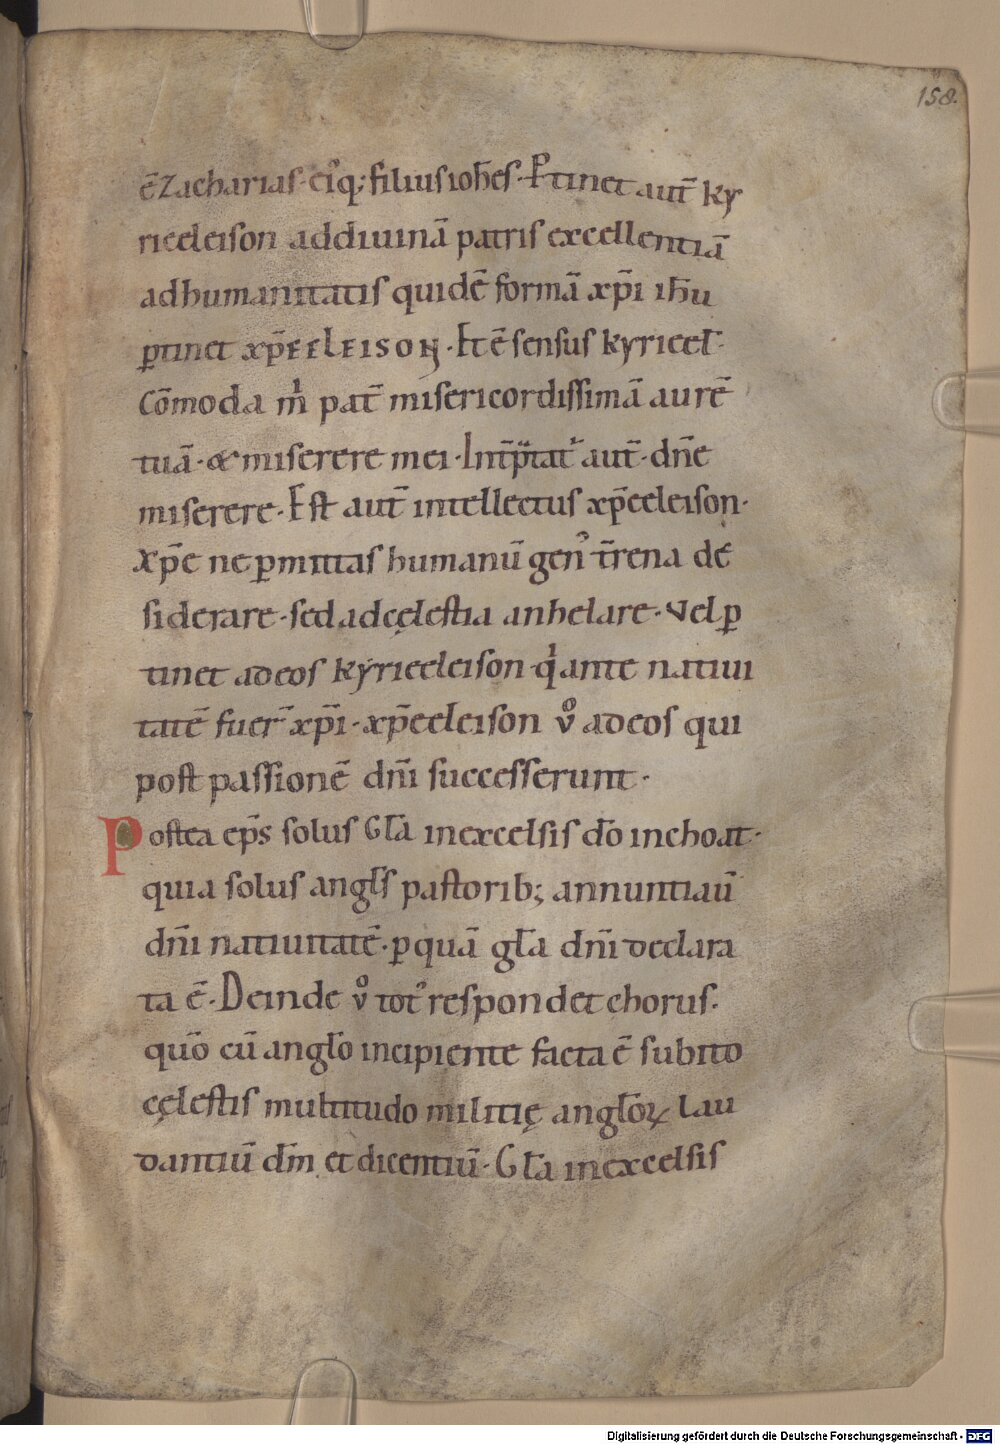 158.
ē Zacharias· ei'q; filius ioh̄es· P̲tinet aut̄ ky
rieeleison addiuinā patris excellentiā
adhumanitatis quidē formā xp̄i ih̄u
ꝑtinet xp̄eeleison· Et ē sensus kyrieel̄·
Cōmoda m̊ pat̄ misericordissimā aurē
tuā· & miserere mei· Int̄p̄tat̓ aut̄· dn̄e
miserere· Est aut̄ intellectus xp̄eeleison·
Xp̄e ne ꝑmittas humanū gen' t̄rena de
siderare· sed adcęlestia anhelare· Vel ꝑ
tinet adeos kyrieeleison qͥ ante natiui
tatē fuer̄ xp̄i· xp̄eeleison v̊ adeos qui
post passionē dn̄i successerunt·
Postea ep̄s solus Gl̄a inexcelsis dō inchoat·
quia solus angl̄s pastorib; annuntiauit̄
dn̄i natiuitatē· ꝑ quā gl̄a dn̄i declara
ta ē· Deinde v̊ tot' respondet chorus·
quō cū angl̄o incipiente facta ē subito
cęlestis multitudo militię angl̄oꝝ lau
dantiū dm̄ et dicentiū· Gl̄a inexcelsis
Digitalisierung gefördert durch die Deutsche Forschungsgemeinschaft - DFG